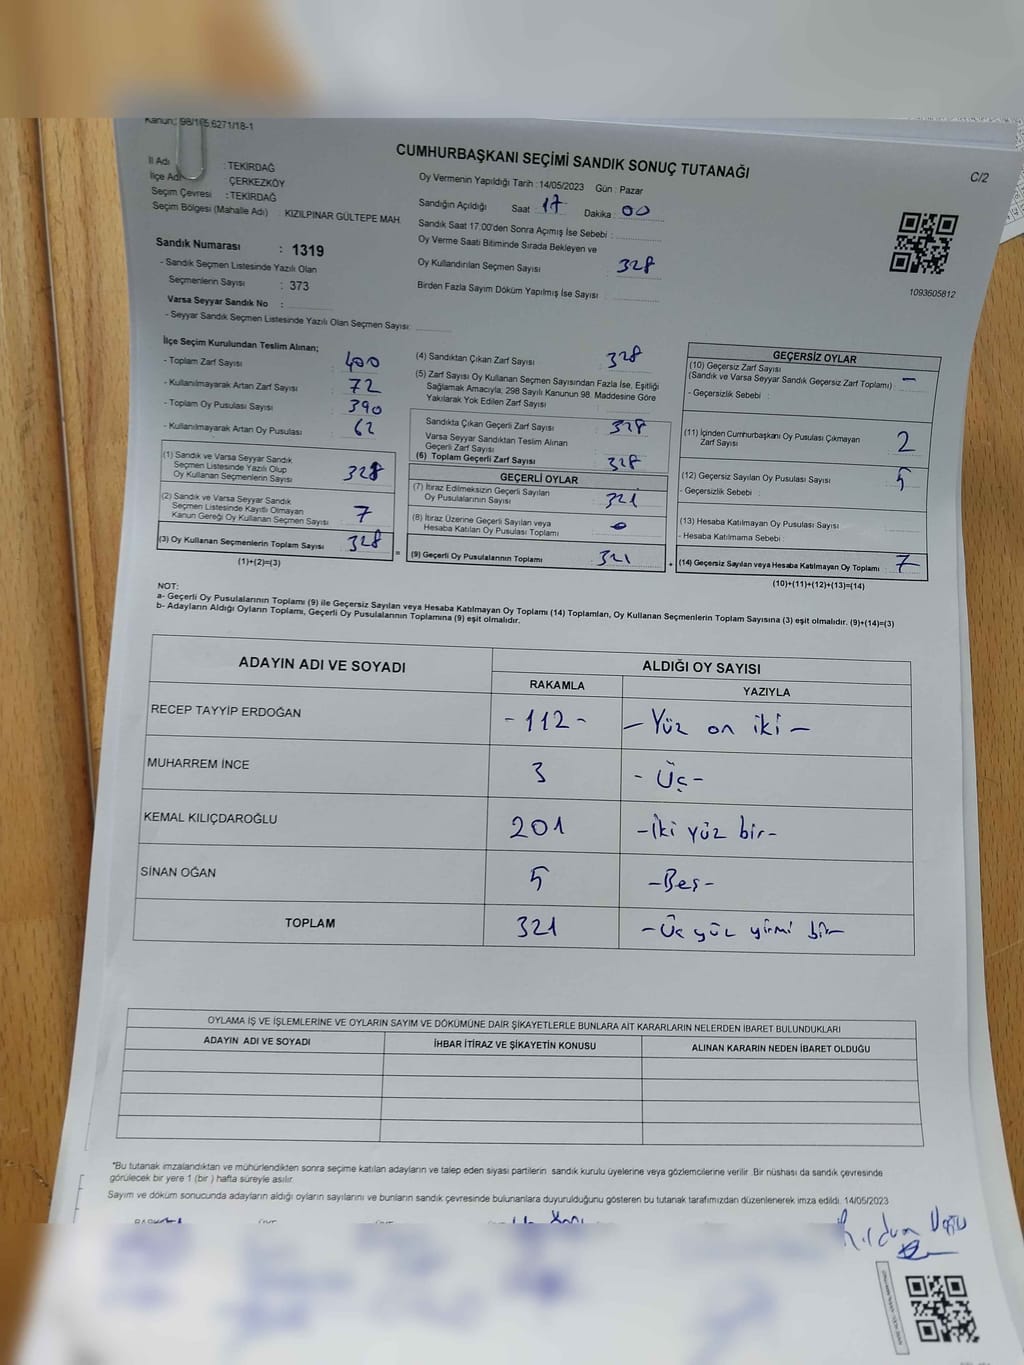 Kanun: 98/165,6271/18-1
CUMHURBAŞKANI SEÇİMİ SANDIK SONUÇ TUTANAĞI
C/2
İl Adı : TEKİRDAĞ
İlçe Adı : ÇERKEZKÖY
Seçim Çevresi : TEKİRDAĞ
Seçim Bölgesi (Mahalle Adı) KIZILPINAR GÜLTEPE MAH.
Sandık Numarası : 1319
- Sandık Seçmen Listesinde Yazılı Olan
Seçmenlerin Sayısı : 373
Varsa Seyyar Sandık No :
- Seyyar Sandık Seçmen Listesinde Yazılı Olan Seçmen Sayısı:
Oy Vermenin Yapıldığı Tarih : 14/05/2023 Gün : Pazar
Sandığın Açıldığı Saat 17 Dakika 00
Sandık Saat 17:00'den Sonra Açımış İse Sebebi :
Oy Verme Saati Bitiminde Sırada Bekleyen ve
Oy Kullandırılan Seçmen Sayısı 328
Birden Fazla Sayım Döküm Yapılmış İse Sayısı :
1093605812
İlçe Seçim Kurulundan Teslim Alınan;
- Toplam Zarf Sayısı 400
- Kullanılmayarak Artan Zarf Sayısı 72
- Toplam Oy Pusulası Sayısı 390
- Kullanılmayarak Artan Oy Pusulası 62
(1) Sandık ve Varsa Seyyar Sandık
Seçmen Listesinde Yazılı Olup
Oy Kullanan Seçmenlerin Sayısı 328
(2) Sandık ve Varsa Seyyar Sandık
Seçmen Listesinde Kayıtlı Olmayan
Kanun Gereği Oy Kullanan Seçmen Sayısı 7
(3) Oy Kullanan Seçmenlerin Toplam Sayısı 328
(1)+(2)=(3)
=
(4) Sandıktan Çıkan Zarf Sayısı 328
(5) Zarf Sayısı Oy Kullanan Seçmen Sayısından Fazla İse, Eşitliği
Sağlamak Amacıyla; 298 Sayılı Kanunun 98. Maddesine Göre
Yakılarak Yok Edilen Zarf Sayısı
Sandıkta Çıkan Geçerli Zarf Sayısı 328
Varsa Seyyar Sandıktan Teslim Alınan
Geçerli Zarf Sayısı
(6) Toplam Geçerli Zarf Sayısı 328
GEÇERLİ OYLAR
(7) İtiraz Edilmeksizin Geçerli Sayılan
Oy Pusulalarının Sayısı 321
(8) İtiraz Üzerine Geçerli Sayılan veya
Hesaba Katılan Oy Pusulası Toplamı 0
(9) Geçerli Oy Pusulalarının Toplamı 321
+
GEÇERSİZ OYLAR
(10) Geçersiz Zarf Sayısı
(Sandık ve Varsa Seyyar Sandık Geçersiz Zarf Toplamı) -
- Geçersizlik Sebebi :
(11) İçinden Cumhurbaşkanı Oy Pusulası Çıkmayan
Zarf Sayısı 2
(12) Geçersiz Sayılan Oy Pusulası Sayısı 5
- Geçersizlik Sebebi :
(13) Hesaba Katılmayan Oy Pusulası Sayısı
- Hesaba Katılmama Sebebi :
(14) Geçersiz Sayılan veya Hesaba Katılmayan Oy Toplamı 7
(10)+(11)+(12)+(13)=(14)
NOT:
a- Geçerli Oy Pusulalarının Toplamı (9) ile Geçersiz Sayılan veya Hesaba Katılmayan Oy Toplamı (14) Toplamları, Oy Kullanan Seçmenlerin Toplam Sayısına (3) eşit olmalıdır. (9)+(14)=(3)
b- Adayların Aldığı Oyların Toplamı, Geçerli Oy Pusulalarının Toplamına (9) eşit olmalıdır.
ADAYIN ADI VE SOYADI ALDIĞI OY SAYISI
RAKAMLA YAZIYLA
RECEP TAYYİP ERDOĞAN -112- -Yüz on iki-
MUHARREM İNCE 3 -Üç-
KEMAL KILIÇDAROĞLU 201 -İki yüz bir-
SİNAN OĞAN 5 -Beş-
TOPLAM 321 -Üç yüz yirmi bir-
OYLAMA İŞ VE İŞLEMLERİNE VE OYLARIN SAYIM VE DÖKÜMÜNE DAİR ŞİKAYETLERLE BUNLARA AİT KARARLARIN NELERDEN İBARET BULUNDUKLARI
ADAYIN ADI VE SOYADI İHBAR İTİRAZ VE ŞİKAYETİN KONUSU ALINAN KARARIN NEDEN İBARET OLDUĞU
"Bu tutanak imzalandıktan ve mühürlendikten sonra seçime katılan adayların ve talep eden siyasi partilerin sandık kurulu üyelerine veya gözlemcilerine verilir. Bir nüshası da sandık çevresinde
görülecek bir yere 1 (bir ) hafta süreyle asılır.
Sayım ve döküm sonucunda adayların aldığı oyların sayılarını ve bunların sandık çevresinde bulunanlara duyurulduğunu gösteren bu tutanak tarafımızdan düzenlenerek imza edildi. 14/05/2023